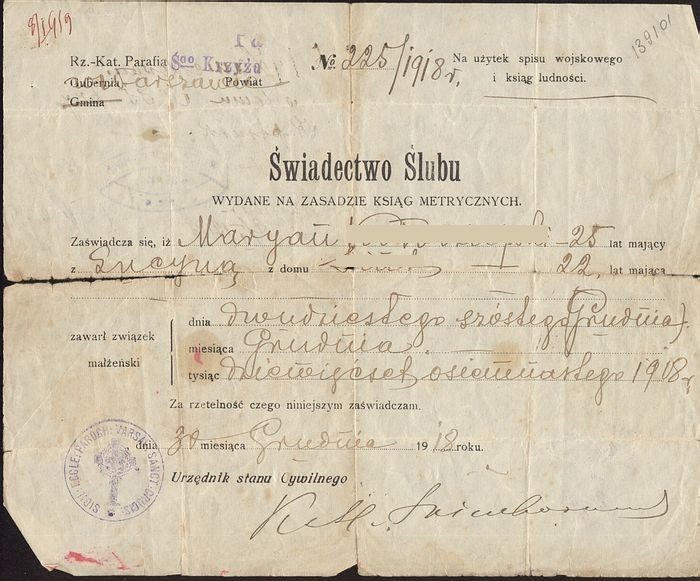 8/I 1919
139101
Rz.-Kat. Parafia Śgo Krzyża
№ 225/1918 r.
Na użytek spisu wojskowego
i ksiąg ludności.
Gubernia Warszawa Powiat
Gmina
Świadectwo Ślubu
WYDANE NA ZASADZIE KSIĄG METRYCZNYCH.
Zaświadcza się, iż Maryan 25 lat mający
z Lucyną z domu 22 lat mającą
zawarł związek
małżeński
dnia dwudziestego szóstego (Grudnia)
miesiąca Grudnia
tysiąc dziewięćset osiemnastego 1918 r.
Za rzetelność czego niniejszym zaświadczam.
dnia 30 miesiąca Grudnia 1918 roku.
Urzędnik stanu Cywilnego
SIGIL: ECCLE: PAROCH: VARSAV: SANCT: CRUCIS